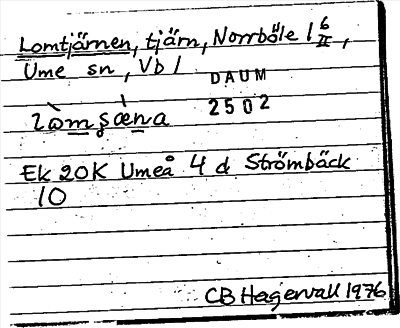 Lomtjärnen, tjärn, Norrböle 1 6/II,
Ume sn, Vb l
DAUM
2502
Ek 20K Umeå 4 d Strömbäck
10
CB Hagervall 1976